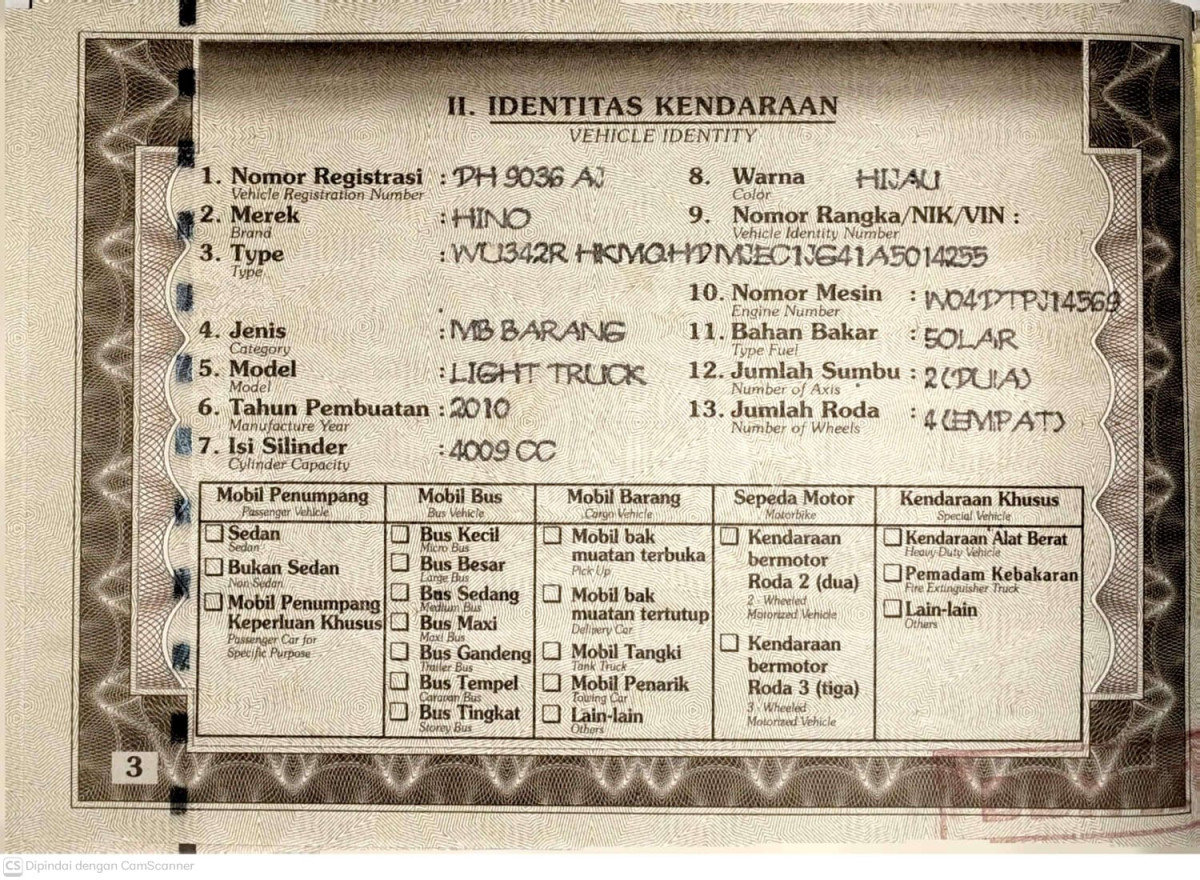 II. IDENTITAS KENDARAAN
VEHICLE IDENTITY
1. Nomor Registrasi : DH 9036 AJ
Vehicle Registration Number
2. Merek : HINO
Brand
3. Type : WU342R HKMQHD
Type
4. Jenis : MB BARANG
Category
5. Model : LIGHT TRUCK
Model
6. Tahun Pembuatan : 2010
Manufacture Year
7. Isi Silinder : 4009 CC
Cylinder Capacity
8. Warna HIJAU
Color
9. Nomor Rangka/NIK/VIN :
Vehicle Identity Number
MJEC1JG41A5014255
10. Nomor Mesin : W04DTPJ14569
Engine Number
11. Bahan Bakar : SOLAR
Type Fuel
12. Jumlah Sumbu : 2 (DUA)
Number of Axis
13. Jumlah Roda : 4 (EMPAT)
Number of Wheels
Mobil Penumpang
Passenger Vehicle
Sedan
Sedan
Bukan Sedan
Non Sedan
Mobil Penumpang
Keperluan Khusus
Passenger Car for
Specific Purpose
Mobil Bus
Bus Vehicle
Bus Kecil
Micro Bus
Bus Besar
Large Bus
Bus Sedang
Medium Bus
Bus Maxi
Maxi Bus
Bus Gandeng
Trailer Bus
Bus Tempel
Caravan Bus
Bus Tingkat
Storey Bus
Mobil Barang
Cargo Vehicle
Mobil bak
muatan terbuka
Pick Up
Mobil bak
muatan tertutup
Delivery Car
Mobil Tangki
Tank Truck
Mobil Penarik
Towing Car
Lain-lain
Others
Sepeda Motor
Motorbike
Kendaraan
bermotor
Roda 2 (dua)
2 - Wheeled
Motorized Vehicle
Kendaraan
bermotor
Roda 3 (tiga)
3 - Wheeled
Motorized Vehicle
Kendaraan Khusus
Special Vehicle
Kendaraan Alat Berat
Heavy Duty Vehicle
Pemadam Kebakaran
Fire Extinguisher Truck
Lain-lain
Others
3
CS Dipindai dengan CamScanner